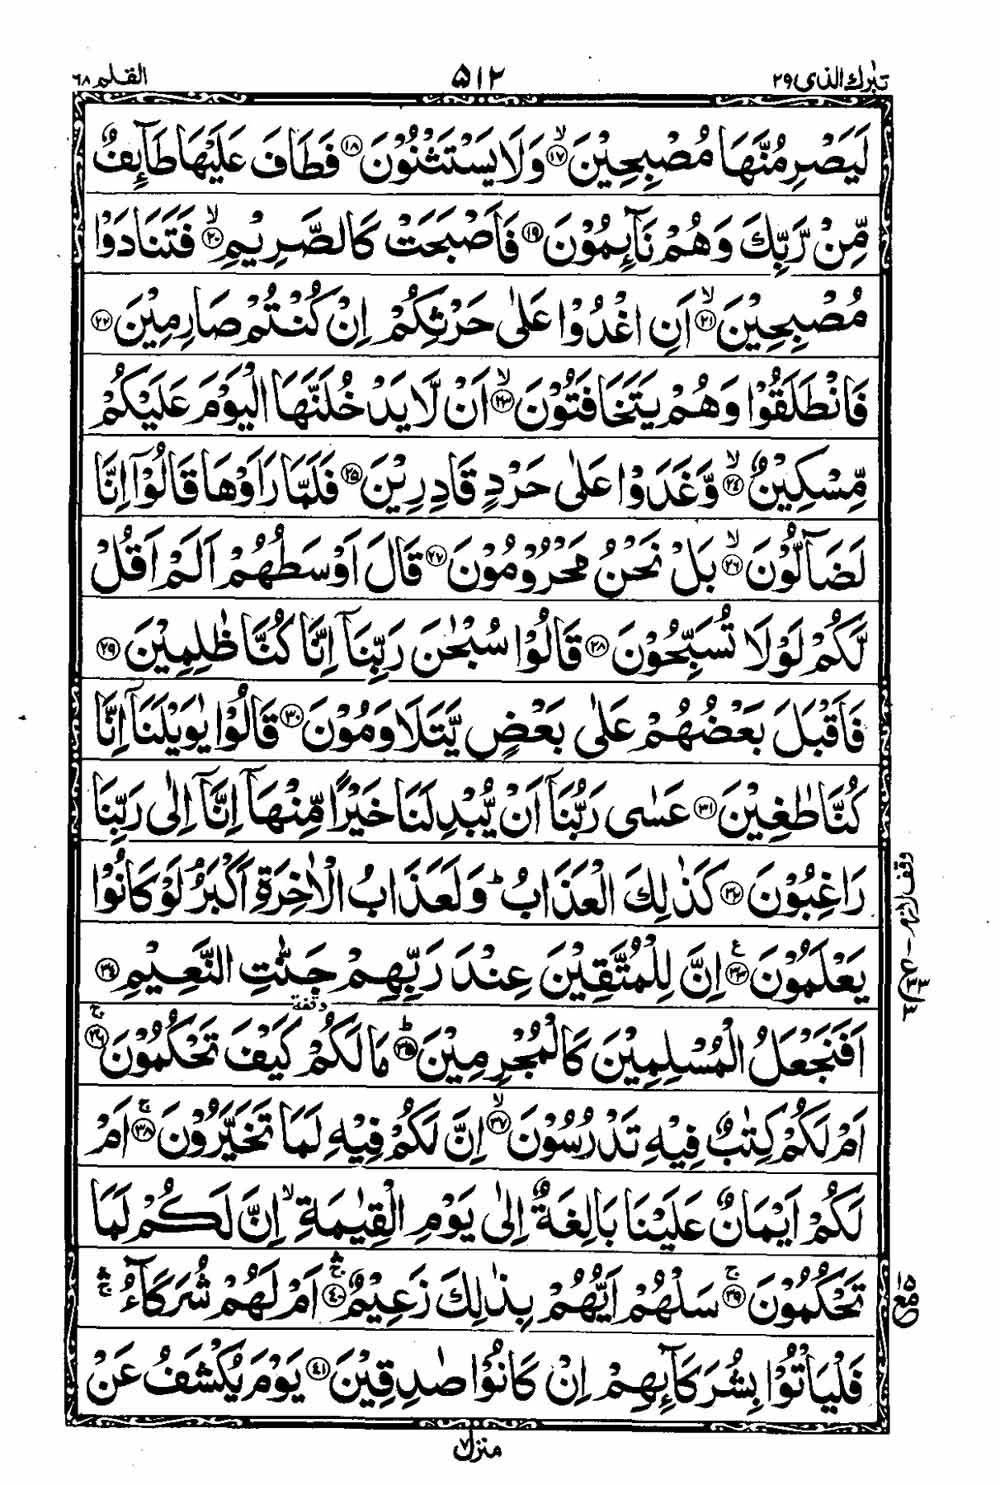 تبٰرك الذی ٢٩ ٥١٢ القلم ٦٨
لَيَصْرِمُنَّهَا مُصْبِحِيْنَ ۙ‏﴿۱۷﴾ وَلَا يَسْتَثْنُوْنَ ﴿۱۸﴾ فَطَافَ عَلَيْهَا طَآئِفٌ
مِّنْ رَّبِّكَ وَهُمْ نَآئِمُوْنَ ﴿۱۹﴾ فَاَصْبَحَتْ كَالصَّرِيْمِ ۙ﴿۲۰﴾ فَتَنَادَوْا
مُصْبِحِيْنَ ۙ﴿۲۱﴾ اَنِ اغْدُوْا عَلٰى حَرْثِكُمْ اِنْ كُنْتُمْ صَارِمِيْنَ ﴿۲۲﴾
فَانْطَلَقُوْا وَهُمْ يَتَخَافَتُوْنَ ۙ﴿۲۳﴾ اَنْ لَّا يَدْخُلَنَّهَا الْيَوْمَ عَلَيْكُمْ
مِّسْكِيْنٌ ۙ﴿۲۴﴾ وَّغَدَوْا عَلٰى حَرْدٍ قَادِرِيْنَ ﴿۲۵﴾ فَلَمَّا رَاَوْهَا قَالُوْۤا اِنَّا
لَضَآلُّوْنَ ۙ﴿۲۶﴾ بَلْ نَحْنُ مَحْرُوْمُوْنَ ﴿۲۷﴾ قَالَ اَوْسَطُهُمْ اَلَمْ اَقُلْ
لَّكُمْ لَوْلَا تُسَبِّحُوْنَ ﴿۲۸﴾ قَالُوْا سُبْحٰنَ رَبِّنَاۤ اِنَّا كُنَّا ظٰلِمِيْنَ ﴿۲۹﴾
فَاَقْبَلَ بَعْضُهُمْ عَلٰى بَعْضٍ يَّتَلَاوَمُوْنَ ﴿۳۰﴾ قَالُوْا يٰوَيْلَنَاۤ اِنَّا
كُنَّا طٰغِيْنَ ﴿۳۱﴾ عَسٰى رَبُّنَاۤ اَنْ يُّبْدِلَنَا خَيْرًا مِّنْهَاۤ اِنَّاۤ اِلٰى رَبِّنَا
رَاغِبُوْنَ ﴿۳۲﴾ كَذٰلِكَ الْعَذَابُ ؕ وَلَعَذَابُ الْاٰخِرَةِ اَكْبَرُ ۘ لَوْ كَانُوْا
يَعْلَمُوْنَ ﴿۳۳﴾ ع اِنَّ لِلْمُتَّقِيْنَ عِنْدَ رَبِّهِمْ جَنّٰتِ النَّعِيْمِ ﴿۳۴﴾
اَفَنَجْعَلُ الْمُسْلِمِيْنَ كَالْمُجْرِمِيْنَ ؕ﴿۳۵﴾ مَا لَكُمْ وقفة كَيْفَ تَحْكُمُوْنَ ۚ﴿۳۶﴾
اَمْ لَكُمْ كِتٰبٌ فِيْهِ تَدْرُسُوْنَ ۙ﴿۳۷﴾ اِنَّ لَكُمْ فِيْهِ لَمَا تَخَيَّرُوْنَ ۚ﴿۳۸﴾ اَمْ
لَكُمْ اَيْمَانٌ عَلَيْنَا بَالِغَةٌ اِلٰى يَوْمِ الْقِيٰمَةِ ۙ اِنَّ لَكُمْ لَمَا
تَحْكُمُوْنَ ۚ﴿۳۹﴾ سَلْهُمْ اَيُّهُمْ بِذٰلِكَ زَعِيْمٌ ۛۚ﴿۴۰﴾ اَمْ لَهُمْ شُرَكَآءُ ۛۚ
فَلْيَاْتُوْا بِشُرَكَآئِهِمْ اِنْ كَانُوْا صٰدِقِيْنَ ﴿۴۱﴾ يَوْمَ يُكْشَفُ عَنْ
منزل ٧